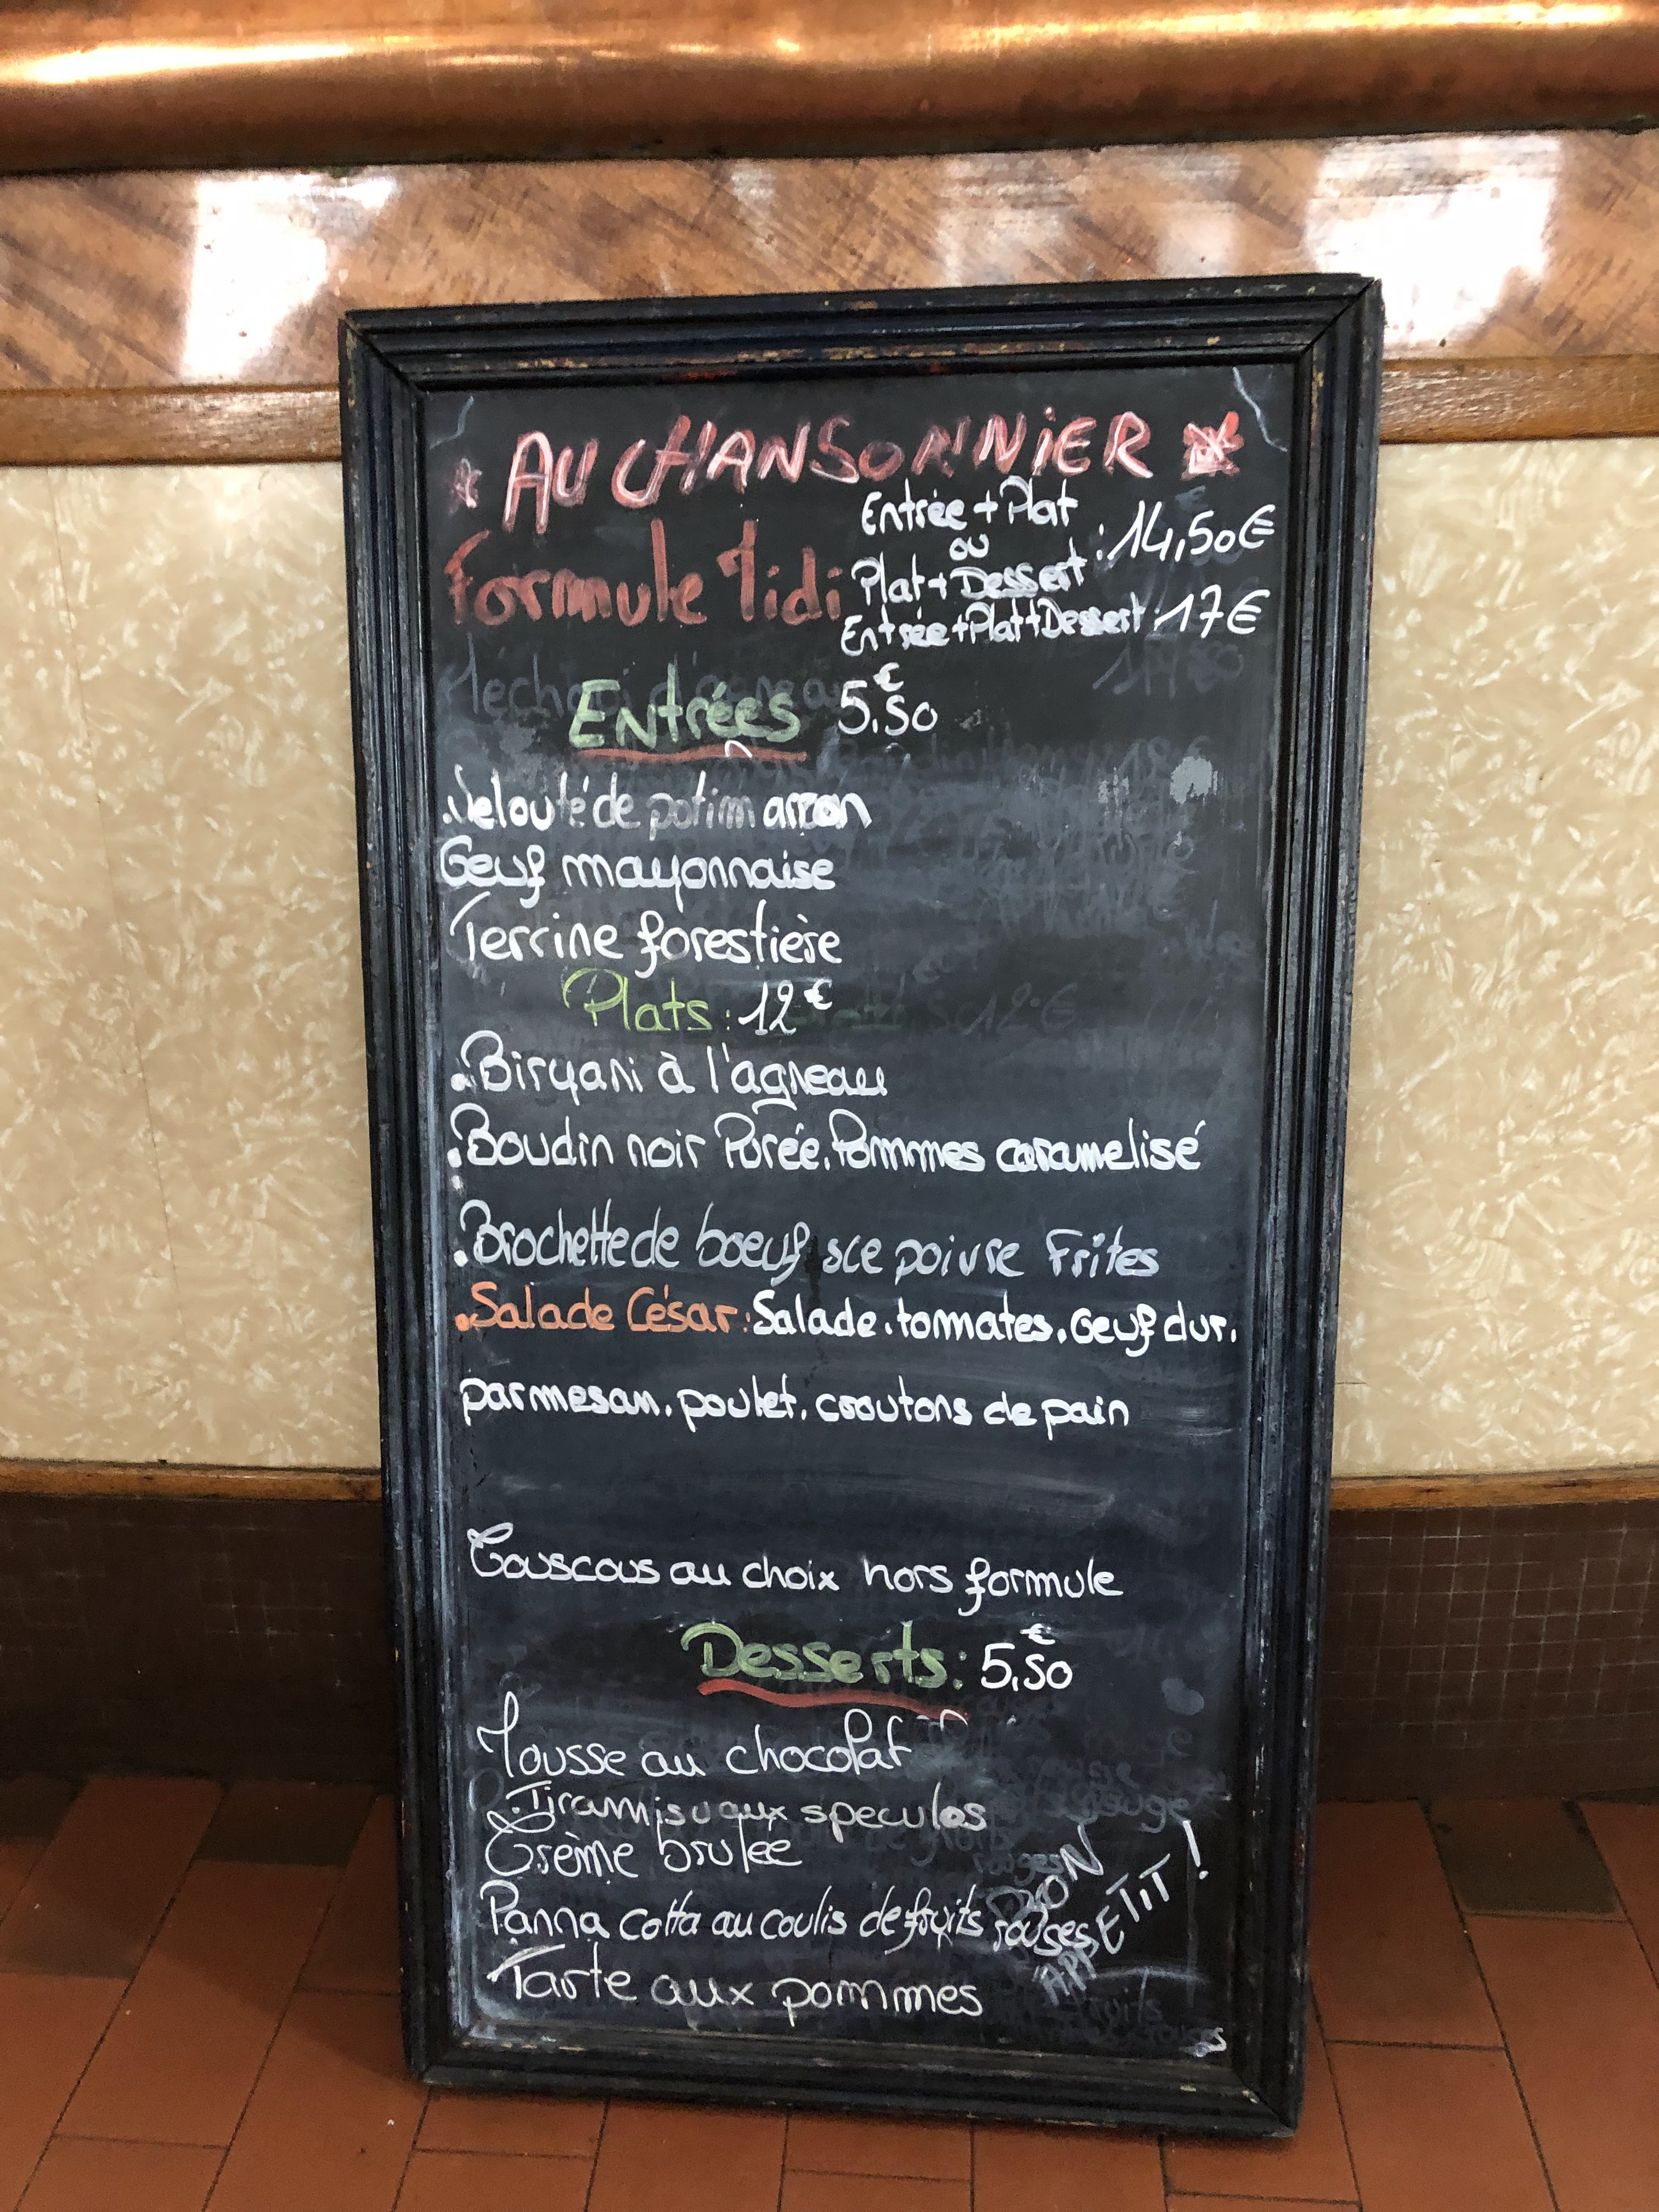 AU CHANSONNiER
Formule Midi
Entrée + Plat
ou
Plat + Dessert : 14,50€
Entrée+Plat+Dessert : 17€
Entrées 5,50€
.Velouté de potimarron
Oeuf mayonnaise
Terrine forestière
Plats : 12€
.Biryani à l'agneau
.Boudin noir Purée. Pommes caramelisé
.Brochette de boeuf sce poivre Frites
.Salade César: Salade. tomates. Oeuf dur.
parmesan. poulet. croutons de pain
Couscous au choix hors formule
Desserts : 5,50€
Mousse au chocolat
.Tiramisu aux speculos
Crème brulee
Panna cotta au coulis de fruits rouges
Tarte aux pommes
BON
APPETiT !